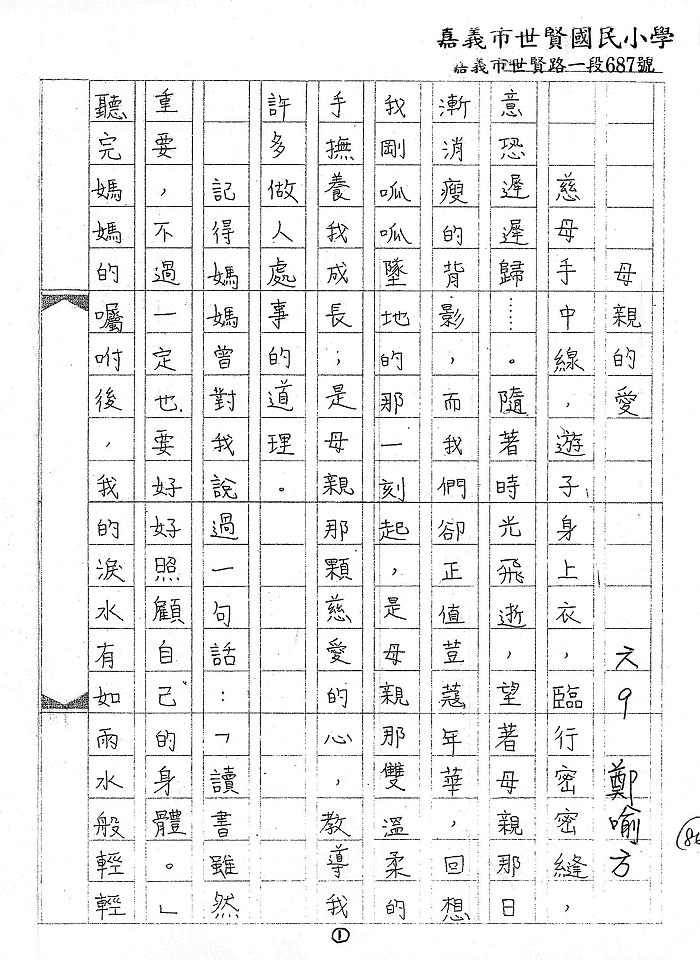 嘉義市世賢國民小學
嘉義市世賢路一段687號
母親的愛 六9 鄭喻方
慈母手中線,遊子身上衣,臨行密密縫,
意恐遲遲歸……。隨著時光飛逝,望著母親那日
漸消瘦的背影,而我們卻正值荳蔻年華,回想
我剛呱呱墜地的那一刻起,是母親那雙溫柔的
手撫養我成長;是母親那顆慈愛的心,教導我
許多做人處事的道理。
記得媽媽曾對我說過一句話:「讀書雖然
重要,不過一定也要好好照顧自己的身體。」
聽完媽媽的囑咐後,我的淚水有如雨水般輕輕
1